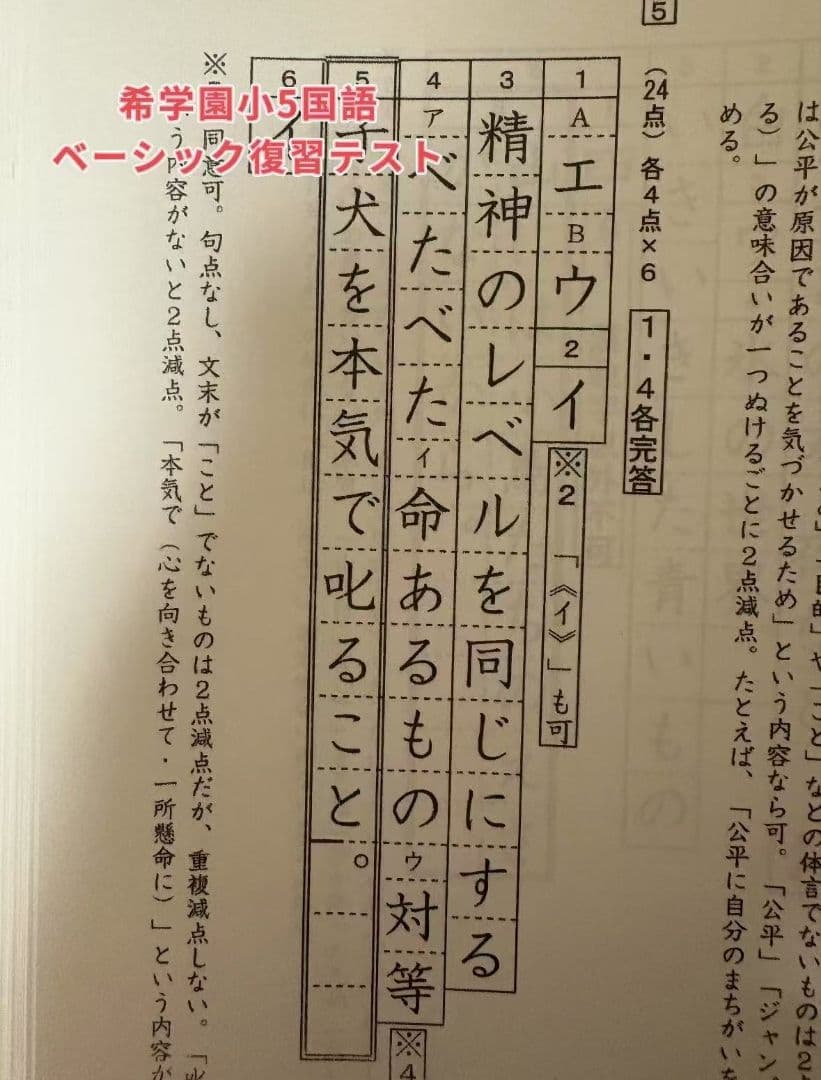 希学園小5国語
ベーシック復習テスト
は公平が原因であることを気づかせるため」という内容なら可。「公平」「ジャン
る)」の意味合いが一つぬけるごとに2点減点。たとえば、「公平に自分のまちがいを
める。
5
(24点)各4点×6 1・4各完答
1 A エ B ウ
2 イ
※2 「《イ》」も可
3 精神のレベルを同じにする
4 ア べたべた イ 命あるもの ウ 対等
※4
5 犬を本気で叱ること。
6 イ
※ 同意可。句点なし、文末が「こと」でないものは2点減点だが、重複減点しない。「叱
う内容がないと2点減点。「本気で(心を向き合わせて・一所懸命に)」という内容が